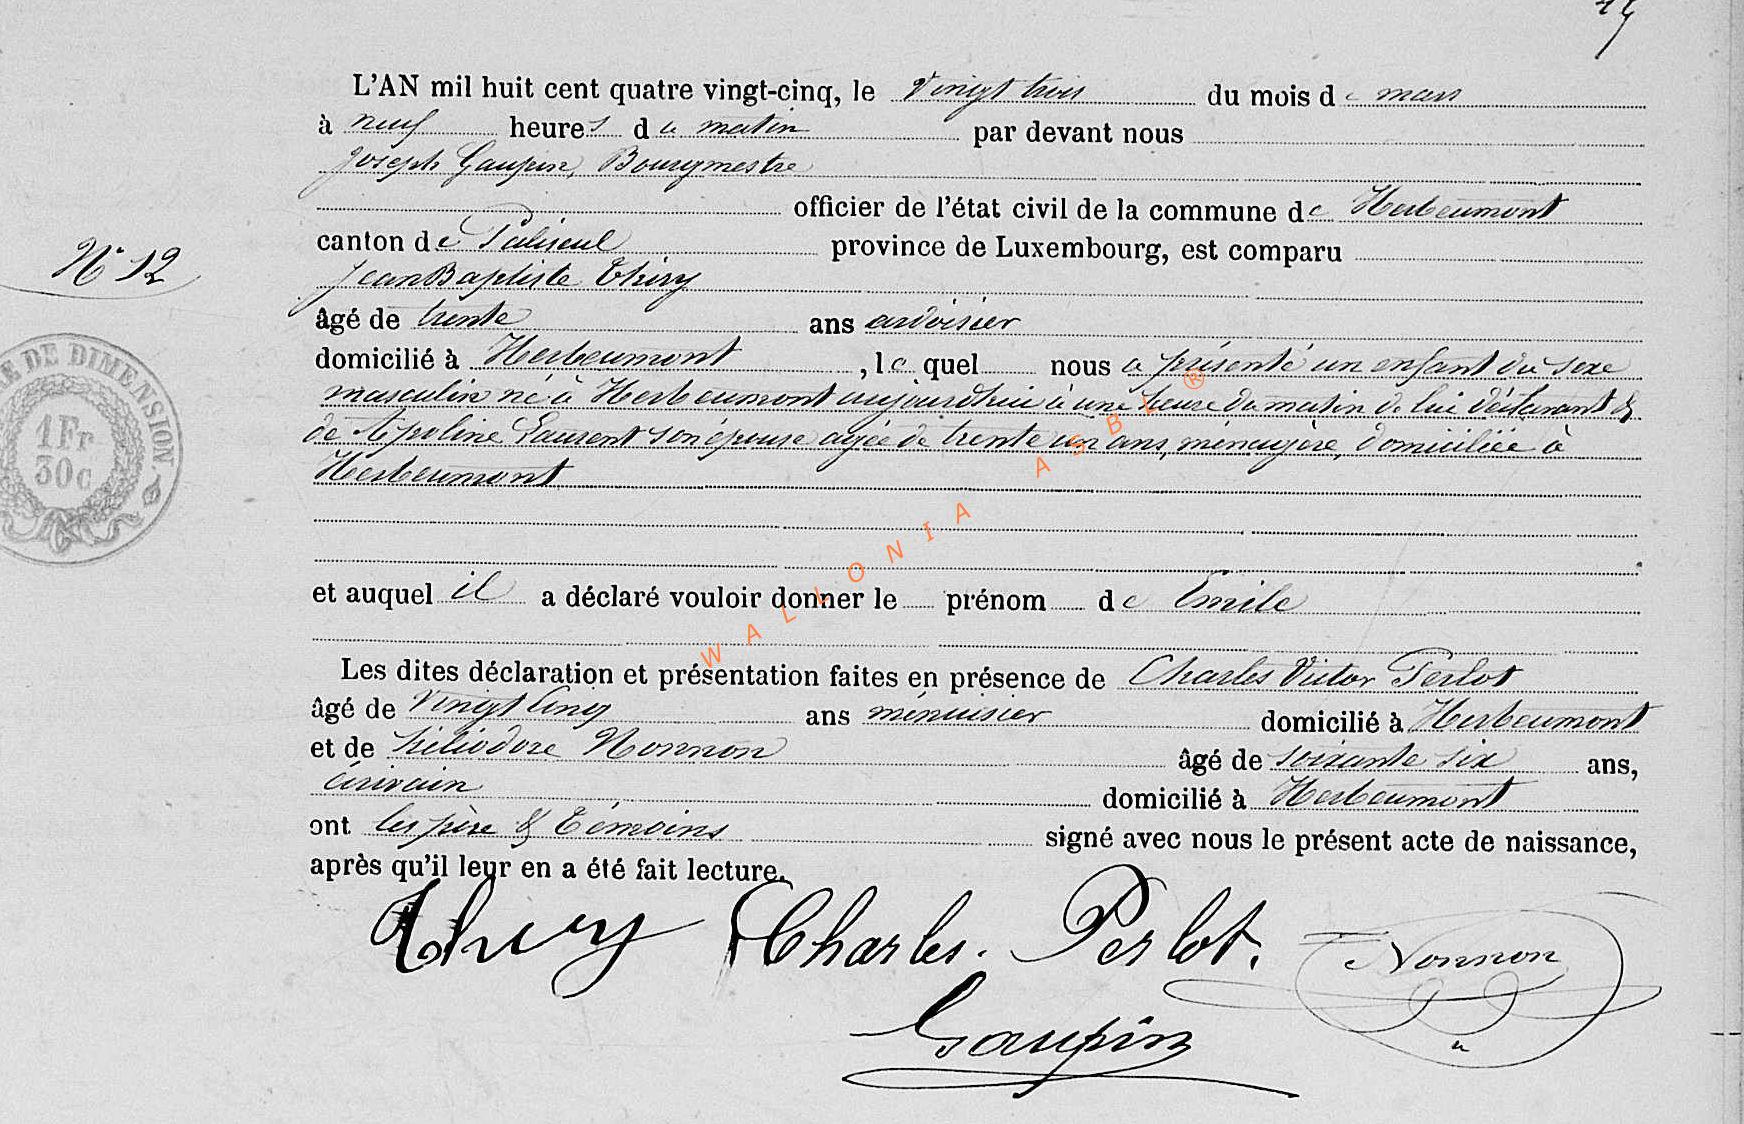 19
L'AN mil huit cent quatre vingt-cinq, le Vingt trois du mois de mars
à neuf heures du matin par devant nous
Joseph Gaupin, Bourgmestre
officier de l'état civil de la commune de Herbeumont
canton de Paliseul province de Luxembourg, est comparu
N° 12
Jean Baptiste Thiry
âgé de trente ans ardoisier
domicilié à Herbeumont, lequel nous a présenté un enfant du sexe
masculin né à Herbeumont aujourd'hui à une heure du matin de lui déclarant &
de Apoline Laurent son épouse agée de trente un ans, ménagère, domiciliée à
Herbeumont
et auquel il a déclaré vouloir donner le prénom de Emile
Les dites déclaration et présentation faites en présence de Charles Victor Perlot
âgé de Vingt Cinq ans menuisier domicilié à Herbeumont
et de Héliodore Nonnon âgé de soixante six ans,
écrivain domicilié à Herbeumont
ont les père & Témoins signé avec nous le présent acte de naissance,
après qu'il leur en a été fait lecture.
Thiry Charles. Perlot. Nonnon
Gaupin
DE DIMENSION.
1 Fr
30c
WALLONIA ASBL ®